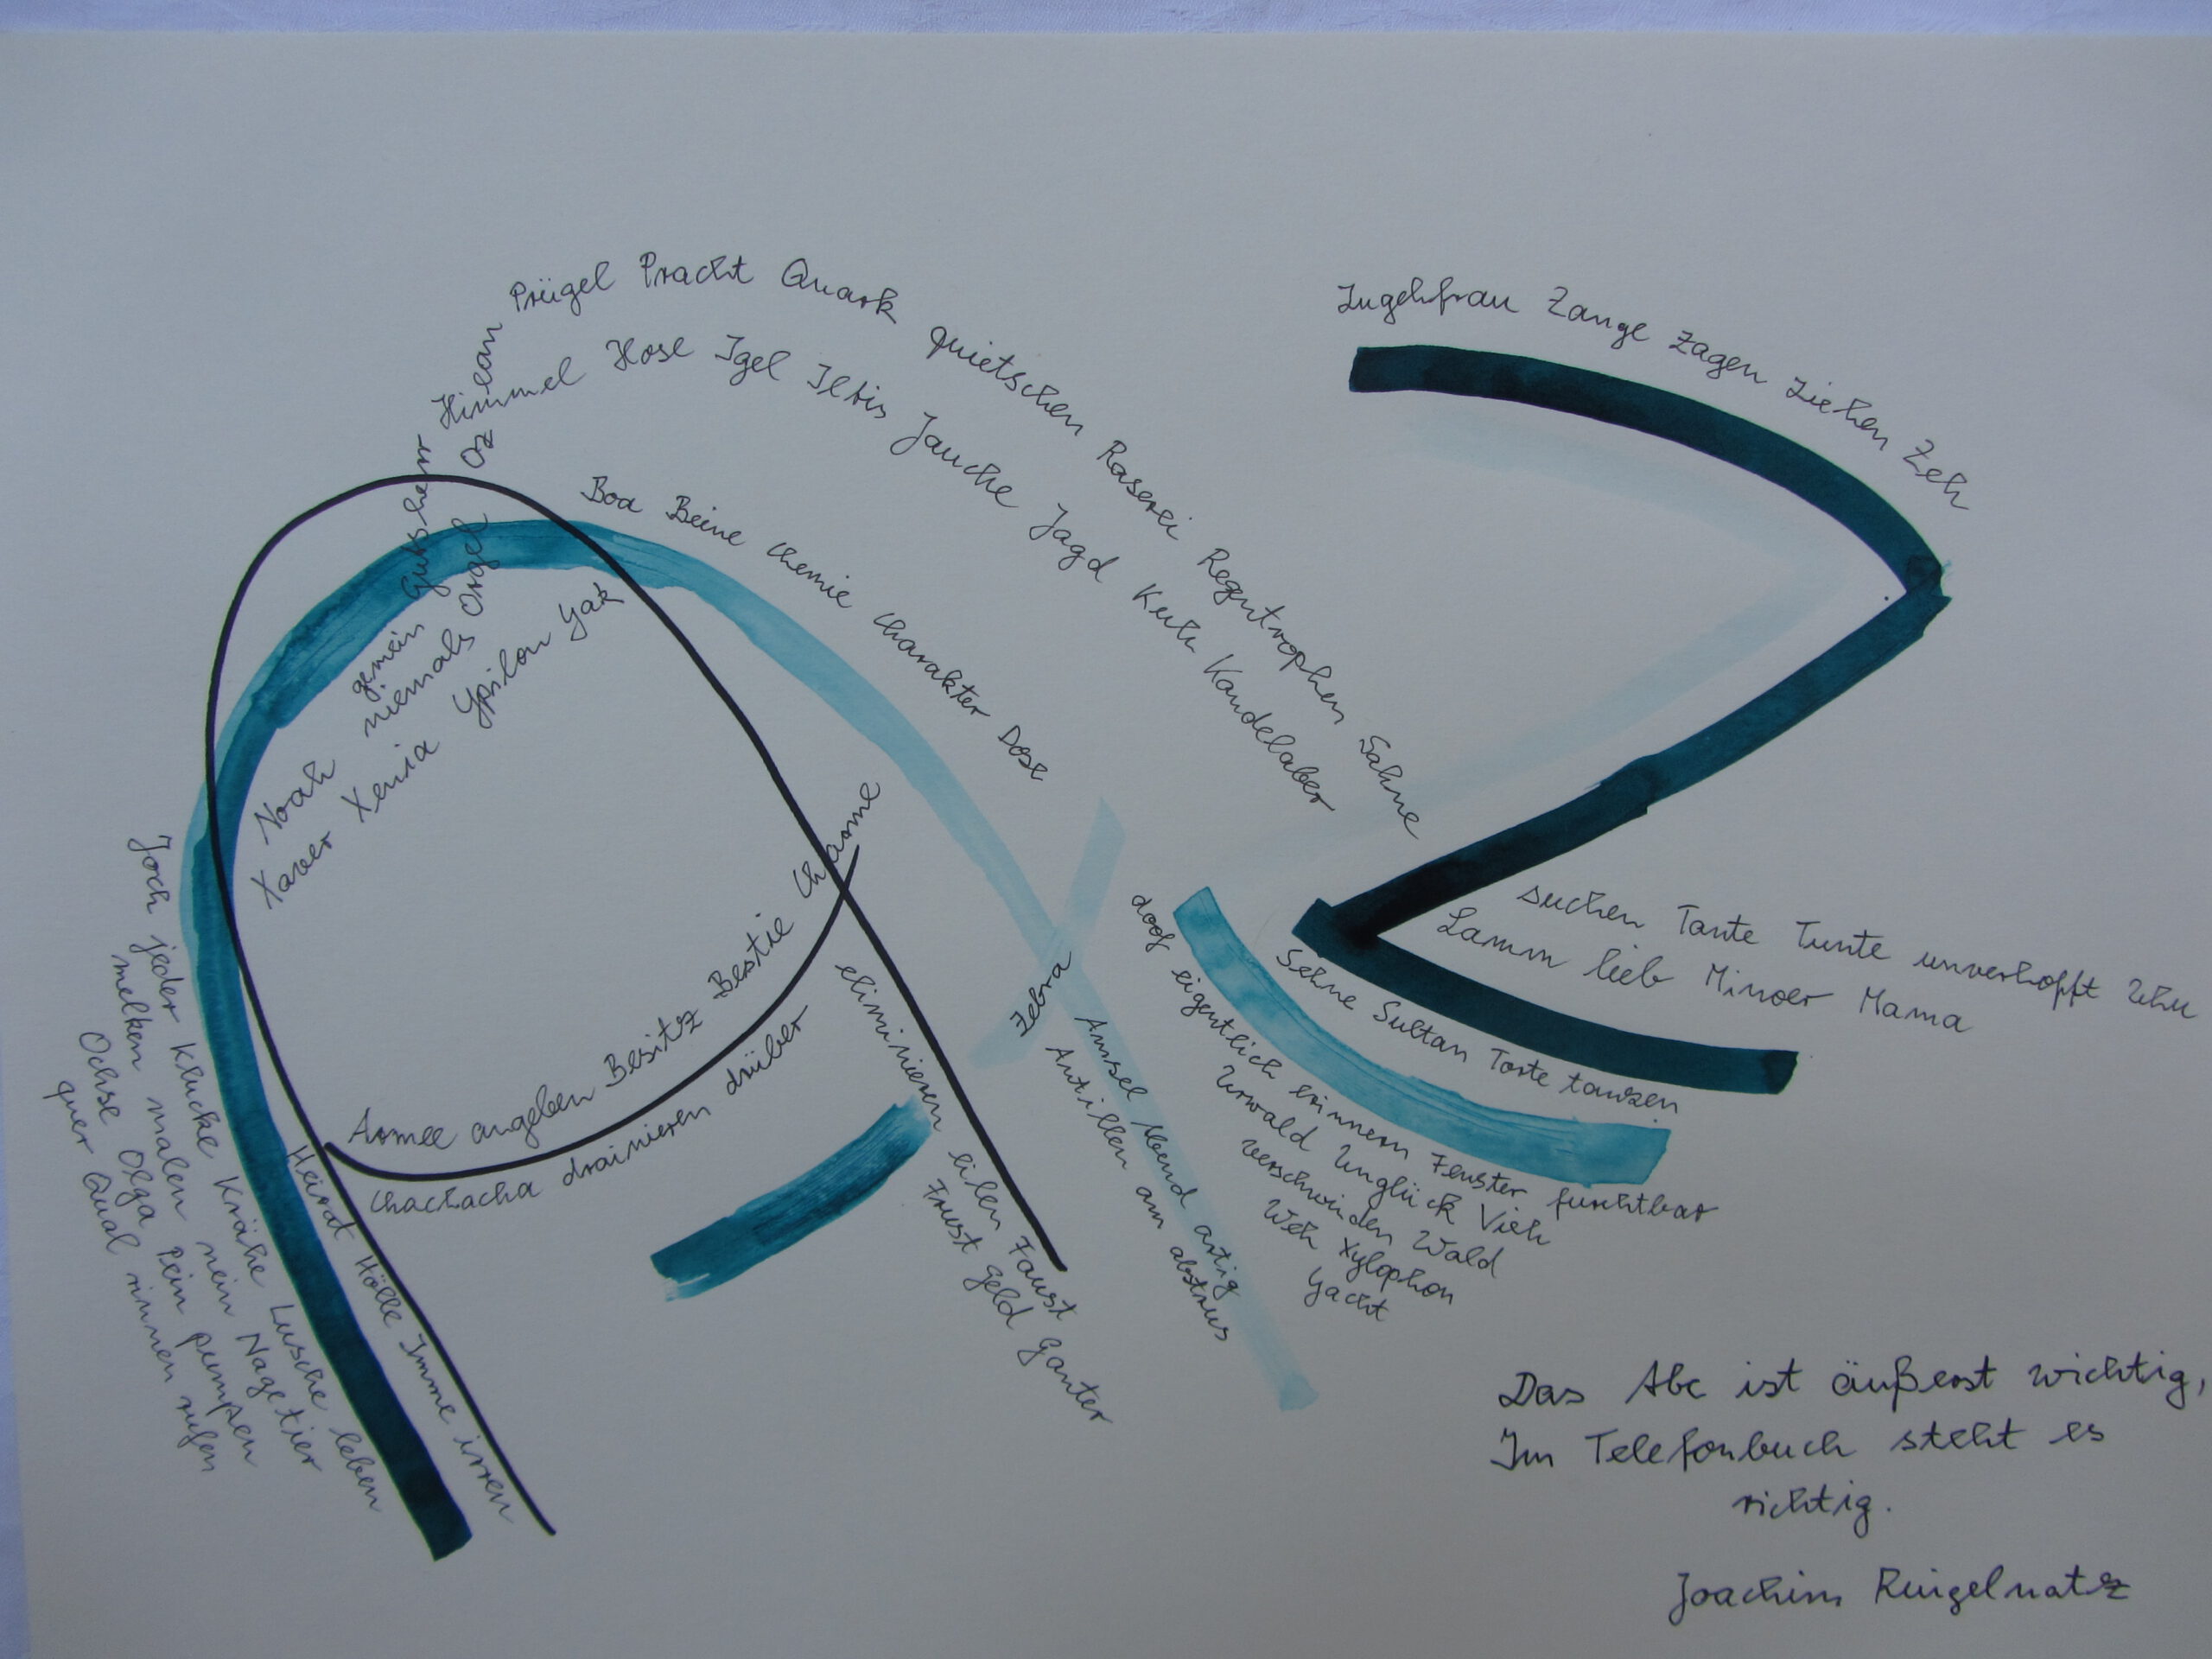 Prügel Pracht Quark quietschen Raserei Regentrophen Sahne
Himmel Hose Igel Iltis Jauche Jagd Kuh Kandelaber
Boa Beine Chemie Charakter Dose
Jugehfrau Zange zagen ziehen Zeh
gemein Gutsherr
Noah niemals Orgel Ozean
Xaver Xenia Ypsilon Yak
Armee angeben Besitz Bestie Charme
Chachacha drainieren drüber
eliminieren eilen Faust
Frust Geld Ganter
Zebra
Amsel Abend artig
Antillen am abstrus
suchen Tante Tunte unverhofft Uhu
Lamm lieb Minder Mama
Sehne Sultan Torte tanzen
doof eigentlich erinnern Fenster furchtbar
Urwald Unglück Vieh
verschwinden Wald
Weh Xylophon
Yacht
Heirat Hölle Imme irren
Joch jeder Klucke Krähe Lusche leben
melken malen nein Nagetier
Ochse Olga Pein pumpen
quer Qual rinnen rufen
Das Abc ist äußerst wichtig,
Im Telefonbuch steht es
richtig.
Joachim Ringelnatz